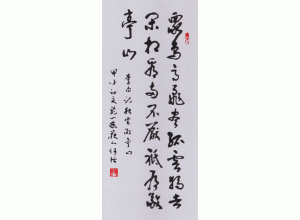 眾鳥高飛盡孤雲獨去
閑相看兩不厭祗有敬
亭山
李白詩獨坐敬亭山
甲申初夏